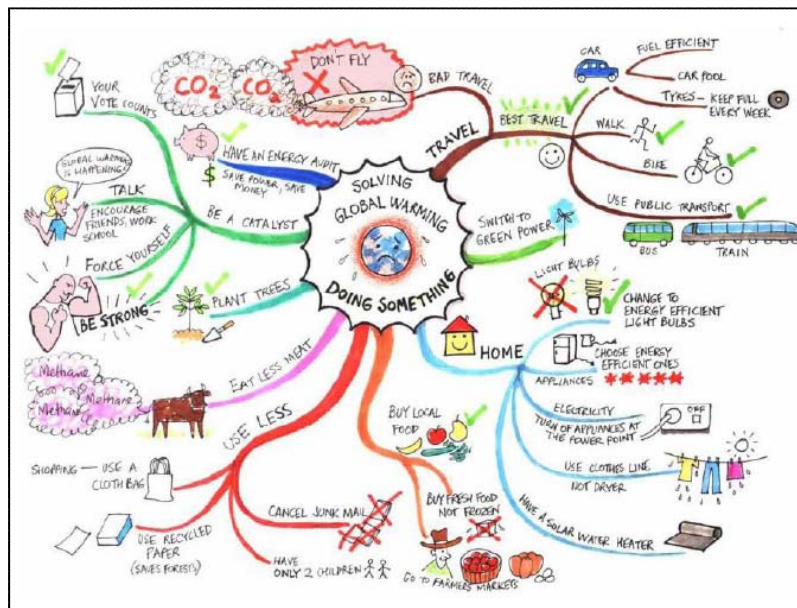 SOLVING
GLOBAL WARMING
DOING SOMETHING
TRAVEL
BAD TRAVEL
DON'T FLY
CO2
CO2
BEST TRAVEL
CAR
FUEL EFFICIENT
CAR POOL
TYRES — KEEP FULL
EVERY WEEK
WALK
BIKE
USE PUBLIC TRANSPORT
BUS
TRAIN
SWITCH TO
GREEN POWER
HOME
LIGHT BULBS
CHANGE TO
ENERGY EFFICIENT
LIGHT BULBS
APPLIANCES
CHOOSE ENERGY
EFFICIENT ONES
ELECTRICITY
TURN OF APPLIANCES AT
THE POWER POINT
OFF
USE CLOTHES LINE
NOT DRYER
HAVE A SOLAR WATER HEATER
BUY LOCAL
FOOD
BUY FRESH FOOD
NOT FROZEN
GO TO FARMERS MARKETS
USE LESS
CANCEL JUNK MAIL
HAVE
ONLY 2 CHILDREN
USE RECYCLED
PAPER
(SAVES FORESTS)
SHOPPING — USE A
CLOTH BAG
EAT LESS MEAT
Methane
Methane
Methane
PLANT TREES
BE A CATALYST
YOUR
VOTE COUNTS
TALK
GLOBAL WARMING
IS HAPPENING!
ENCOURAGE
FRIENDS, WORK
SCHOOL
FORCE YOURSELF
BE STRONG
HAVE AN ENERGY AUDIT
$
$
SAVE POWER, SAVE
MONEY